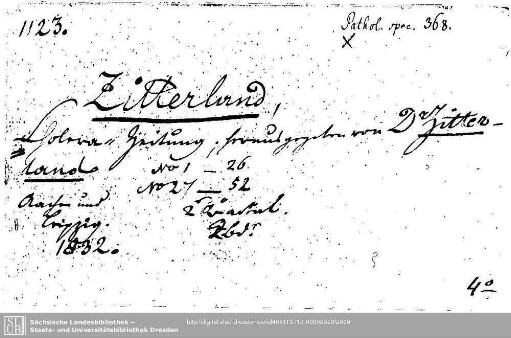 1123.
Pathol. spec. 368.
X
Zitterland,
Cholera-Zeitung, herausgegeben von Dr Zitter-
land No 1 — 26
No 27 — 52
Aachen und
Leipzig.
2 Quartal.
2 bd.
1832.
4o
SLUB
Sächsische Landesbibliothek –
Staats- und Universitätsbibliothek Dresden